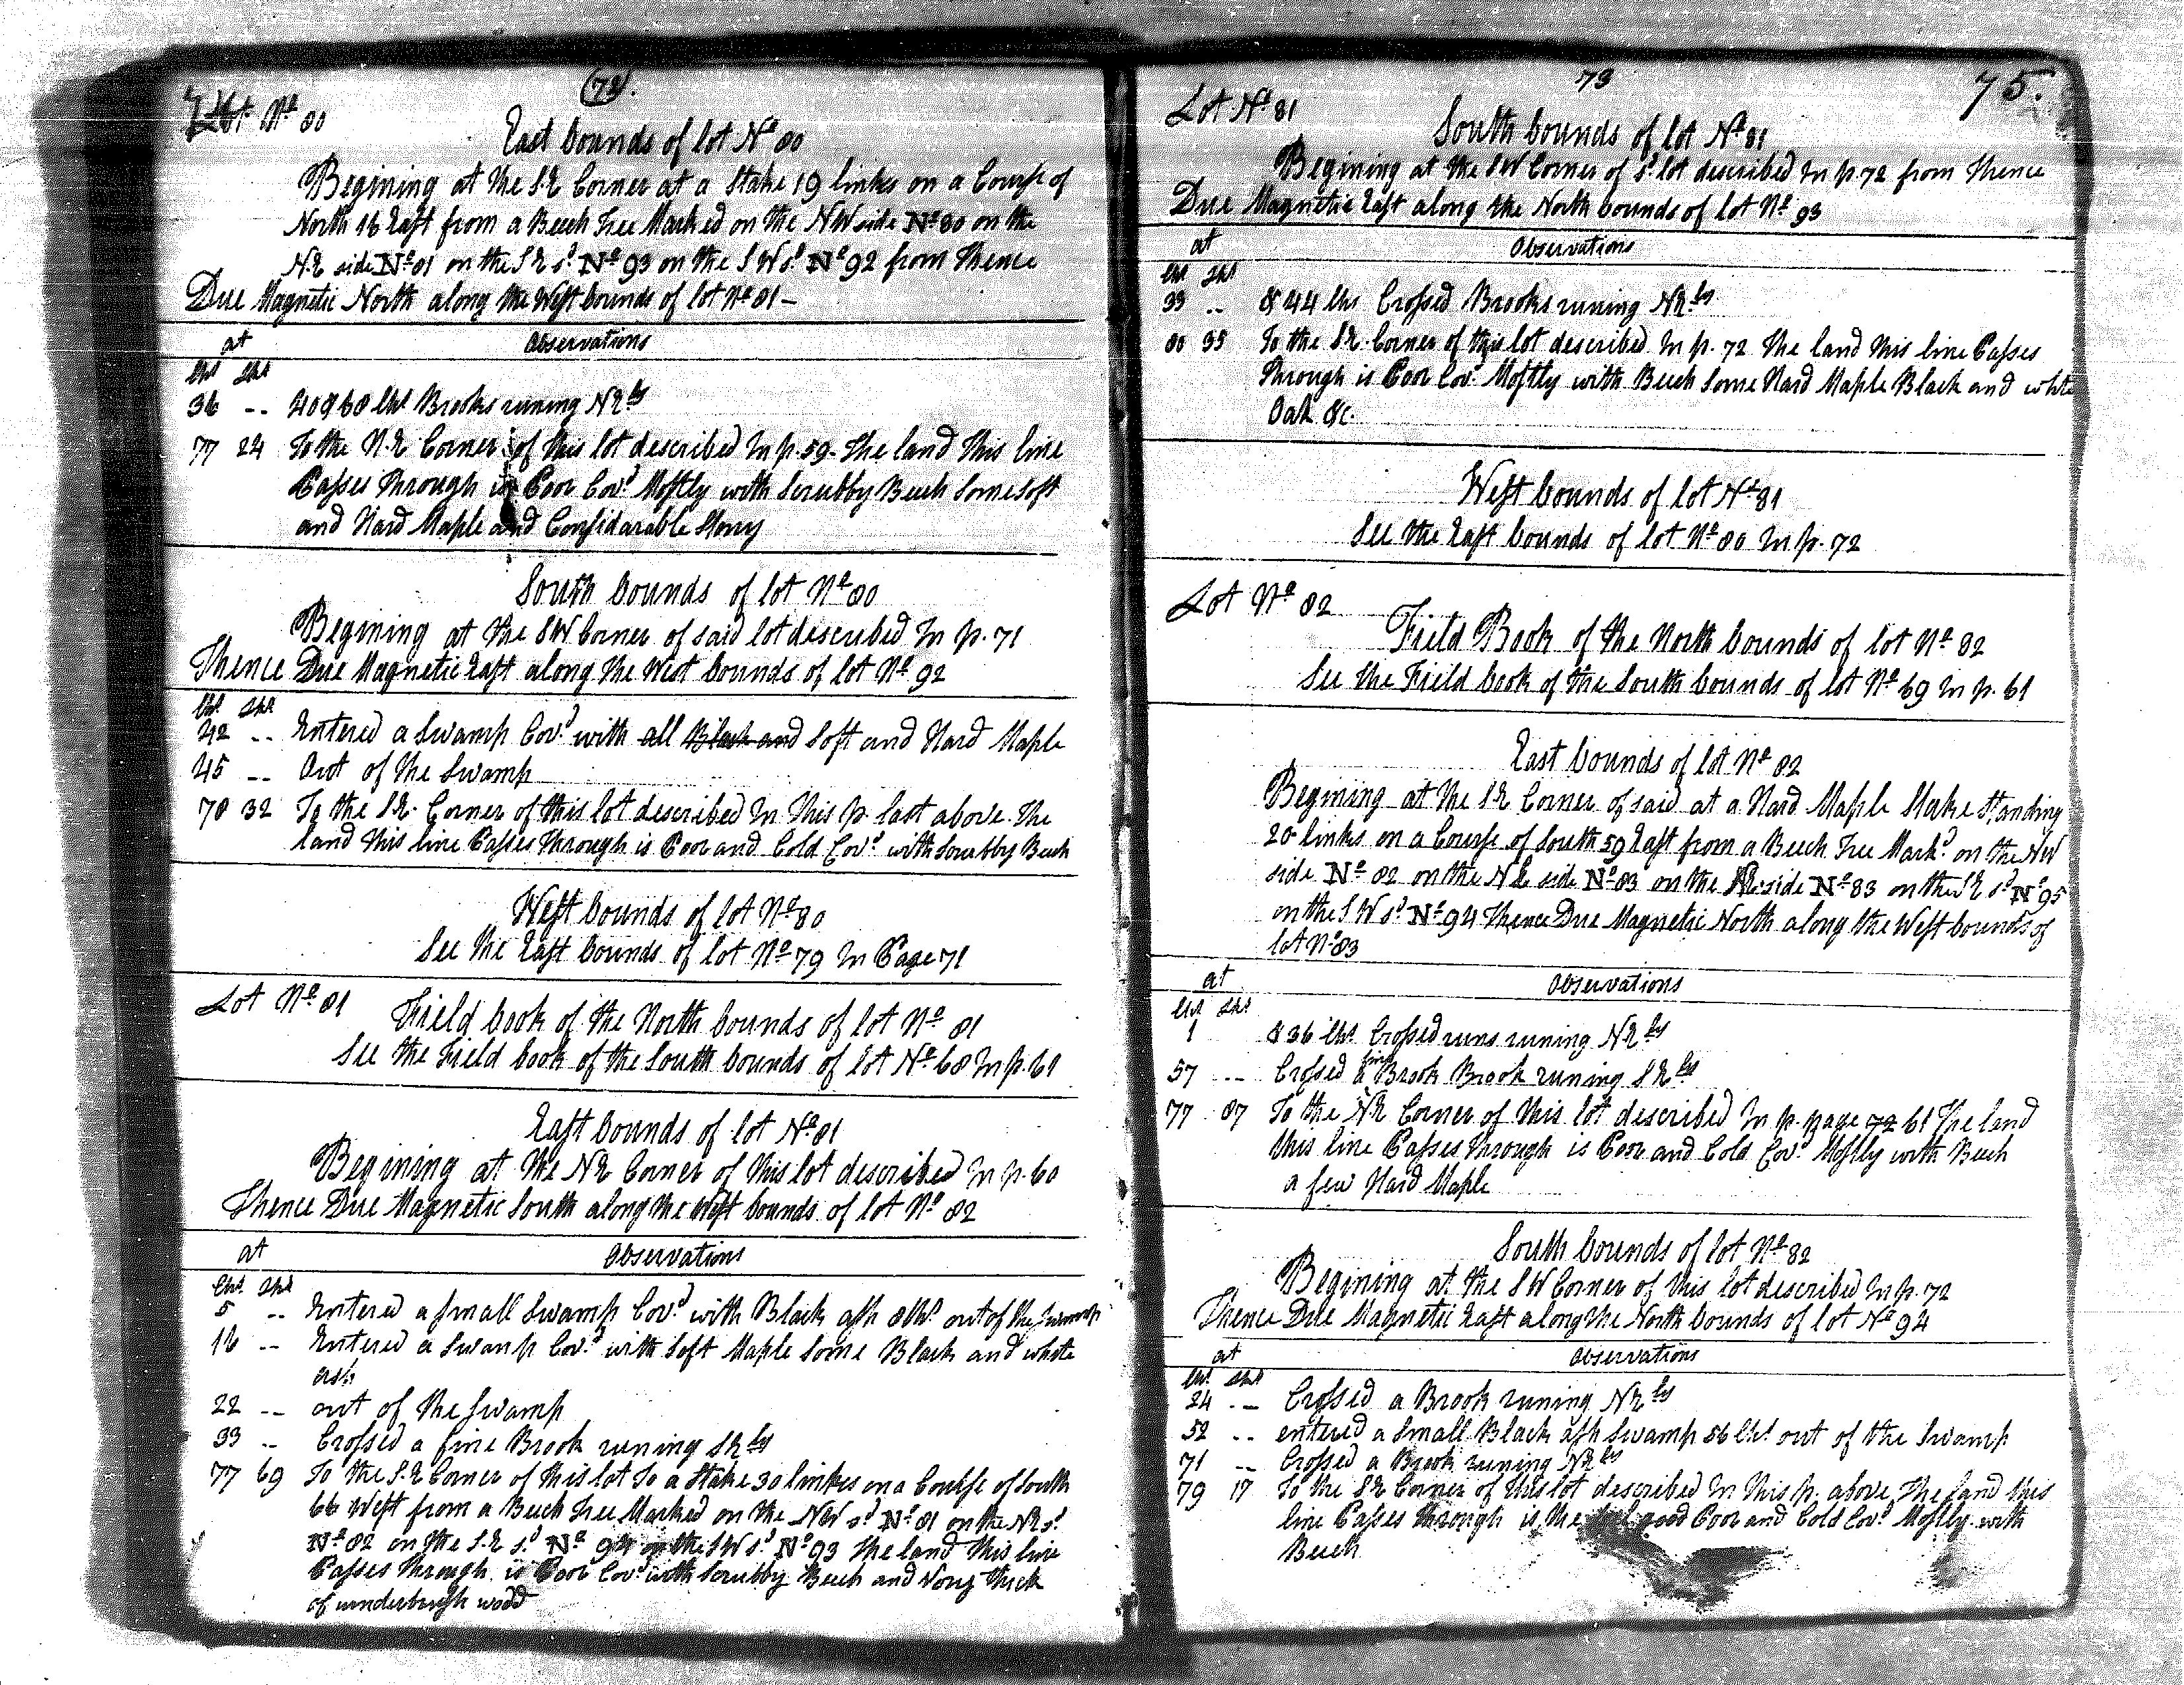 (72).
Lot Nº 80
East bounds of lot Nº 80
Begining at the S.E Corner at a Stake 19 links on a Course of
North 16 East from a Beech Tree Marked on the NW side Nº 80 on the
N.E side Nº 81 on the S E sd Nº 93 on the S W sd Nº 92 from Thence
Due Magnetic North along the West bounds of lot Nº 81 –
at Observations
Chs Lks
36 -- 40 & 60 Chs Brooks runing NEly
77 24 To the N.E Corner of this lot described In p. 59 - The land this line
Passes Through is Poor Covd Mostly with Scrubby Beech Some Soft
and Hard Maple and Considarable Stony
South bounds of lot Nº 80
Begining at the SW Corner of said lot described In p. 71
Thence Due Magnetic East along the West bounds of lot Nº 92
Chs Lks
42 -- Entered a Swamp Covd with all Black and Soft and Hard Maple
45 -- Out of the Swamp
78 32 To the S.E. Corner of this lot described In This p. last above. The
land this line Passes through is Poor and Cold Covd with Scrubby Beech
West bounds of lot Nº 80
See the East bounds of lot Nº 79 In Page 71
Lot Nº 81 Field book of the North bounds of lot Nº 81
See the Field book of the South bounds of lot Nº 68 In p. 61
East bounds of lot Nº 81
Begining at the NE Corner of this lot described In p. 60
Thence Due Magnetic South along the West bounds of lot Nº 82
at Observations
Chs Lks
5 -- Entered a small Swamp Covd with Black ash 8 Chs out of the Swamp
16 -- Entered a Swamp Covd with Soft Maple Some Black and white
ash
22 -- out of the Swamp
33 -- Crossed a fine Brook runing SEly
77 69 To the S.E Corner of this lot To a Stake 30 linkes on a Course of South
66 West from a Beech Tree Marked on the NW sd Nº 81 on the NE sd
Nº 82 on the S.E sd Nº 94 on the SW sd Nº 93 The land this line
Passes Through is Poor Covd with Scrubby Beech and Very thick
of underbrush wood
73
75.
Lot Nº 81
South bounds of lot Nº 81
Begining at the SW Corner of sd lot described In p. 72 from Thence
Due Magnetic East along the North bounds of lot Nº 93
at Observations
Chs Lks
33 -- & 44 Chs Crossed Brooks runing NEly
80 35 To the S.E. Corner of this lot described In p. 72 The land this line Passes
Through is Poor Covd Mostly with Beech Some Hard Maple Black and white
Oak &c.
West bounds of lot Nº 81
See the East bounds of lot Nº 80 In p. 72
Lot Nº 82
Field Book of the North bounds of lot Nº 82
See the Field book of the South bounds of lot Nº 69 In p. 61
East bounds of lot Nº 82
Begining at the SE Corner of said at a Hard Maple Stake Standing
20 links on a Course of South 59 East from a Beech Tree Markd on the NW
side Nº 82 on the N E side Nº 83 on the side Nº 83 on the S E sd Nº 95
on the S W sd Nº 94 Thence Due Magnetic North along the West bounds of
lot Nº 83
at Observations
Chs Lks
1 & 36 Chs Crossed runs runing NEly
57 -- Crossed a fine Brook Brook runing SEly
77 87 To the NE Corner of this lot described In p. page 72 61 The land
this line Passes through is Poor and Cold Covd Mostly with Beech
a few Hard Maple
South bounds of lot Nº 82
Begining at the SW Corner of this lot described In p. 72
Thence Due Magnetic East along the North bounds of lot Nº 94
at Observations
Chs Lks
24 -- Crossed a Brook runing NEly
52 -- entered a Small Black ash Swamp 56 Chs out of the Swamp
71 -- Crossed a Brook runing NEly
79 17 To the SE Corner of this lot described In this p. above The land this
line Passes through is the good Poor and Cold Covd Mostly with
Beech